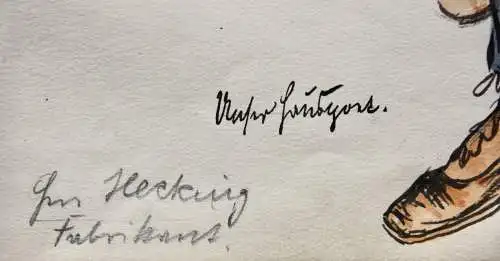 Unser Hauspoet.
Hecking
Fabrikant.